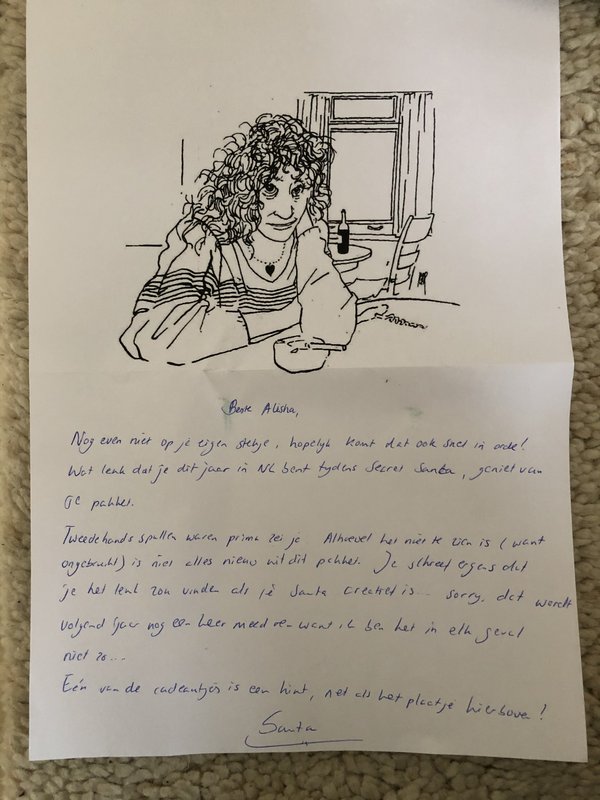 Beste Alisha,
Nog even niet op je eigen stekje, hopelijk komt dat ook snel in orde!
Wat leuk dat je dit jaar in NL bent tijdens Secret Santa, geniet van
je pakket.
Tweedehands spullen waren prima zei je. Alhoewel het niet te zien is (want
ongebruikt) is niet alles nieuw uit dit pakket. Je schreef ergens dat
je het leuk zou vinden als je Santa creatief is... sorry, dat wordt
volgend jaar nog een keer mee want ik ben het in elk geval
niet zo...
Eén van de cadeautjes is een hint, net als het plaatje hierboven!
Santa